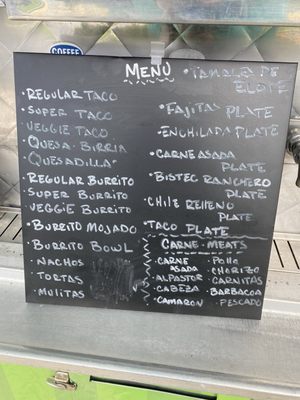 COFFEE
MENU
• REGULAR TACO
• SUPER TACO
VEGGIE TACO
• QUESA-BIRRIA
• QUESADILLA
• REGULAR BURRITO
• SUPER BURRITO
VEGGIE BURRITO
• BURRITO MOJADO
• BURRITO BOWL
• NACHOS
• TORTAS
• MULITAS
• TAMALES DE
ELOTE
• FAJITAS PLATE
• ENCHILADA PLATE
• CARNE ASADA
PLATE
• BISTEC RANCHERO
PLATE
• CHILE RELLENO
PLATE
• TACO PLATE
CARNE - MEATS
• CARNE
ASADA
• ALPASTOR
• CABEZA
• CAMARON
• POLLO
• CHORIZO
• CARNITAS
• BARBACOA
• PESCADO